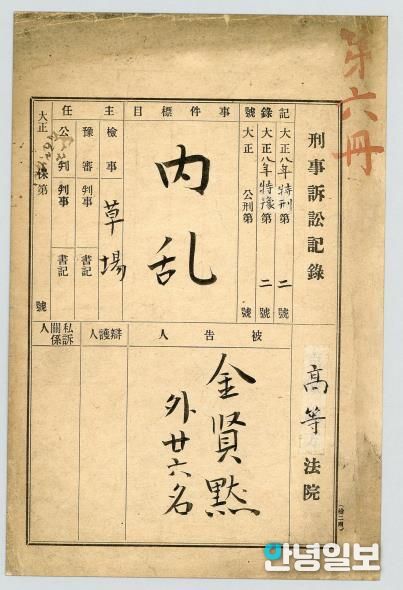 第六冊
刑事訴訟記錄
高等法院
記錄號
大正八年特刑第二號
大正八年特豫第二號
大正 公刑第 號
事件標目
內乱
主任
檢事 草場
豫審判事 書記
公判判事 書記
大正 保第 號
被告人
金賢黙
外廿六名
辯護人
私訴關係人
안녕일보